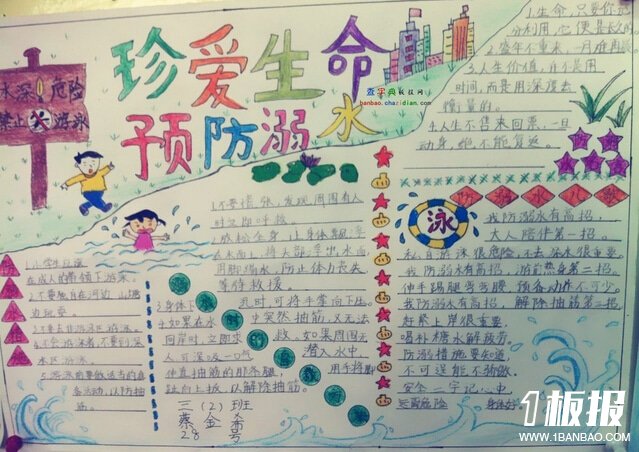 珍爱生命
预防溺水
水深危险
禁止游泳
查字典板报网
banbao.chazidian.com
1.生命,只要你充
分利用,它便是长久的。
2.盛年不重来,一日难再晨
3.人生价值,在不是用
时间,而是用深度去
衡量的。
4.人生不售来回票,一旦
动身,绝不能复返。
防溺水儿歌
泳
我防溺水有高招,
大人陪伴第一招。
私自游泳很危险,不去深水很重要。
我防溺水有高招,游前热身第二招。
伸手踢腿弯弯腰,预备动作不可少。
我防溺水有高招,解除抽筋第三招。
赶紧上岸很重要,
喝补糖水解疲劳。
防溺措施要知道
不可逞能不骄傲
安全二字记心中
远离危险 身体好
1.小学生应该
在成人的带领下游泳。
2.不要独自在河边、山塘
边玩耍。
3.不要去非游泳区游泳。
4.不会游泳者,不要到深
水区游泳。
5.游泳前要做适当的准
备活动,以防抽
筋。
1.不要慌张,发现周围有人
时立即呼救。
2.放松全身,让身体飘浮
在水面上,将头部浮出水面
用脚踢水,防止体力丧失
等待救援。
3.身体下
沉时,可将手掌向下压
4.如果在水
中突然抽筋,又无法
回岸时,立即求
救。如果周围无
人可深吸一口气
潜入水中
伸直抽筋的那条腿,
用手将脚
趾向上扳,以解除抽筋。
三(2)班
蔡金希
28号
1板报
WWW.1BANBAO.COM